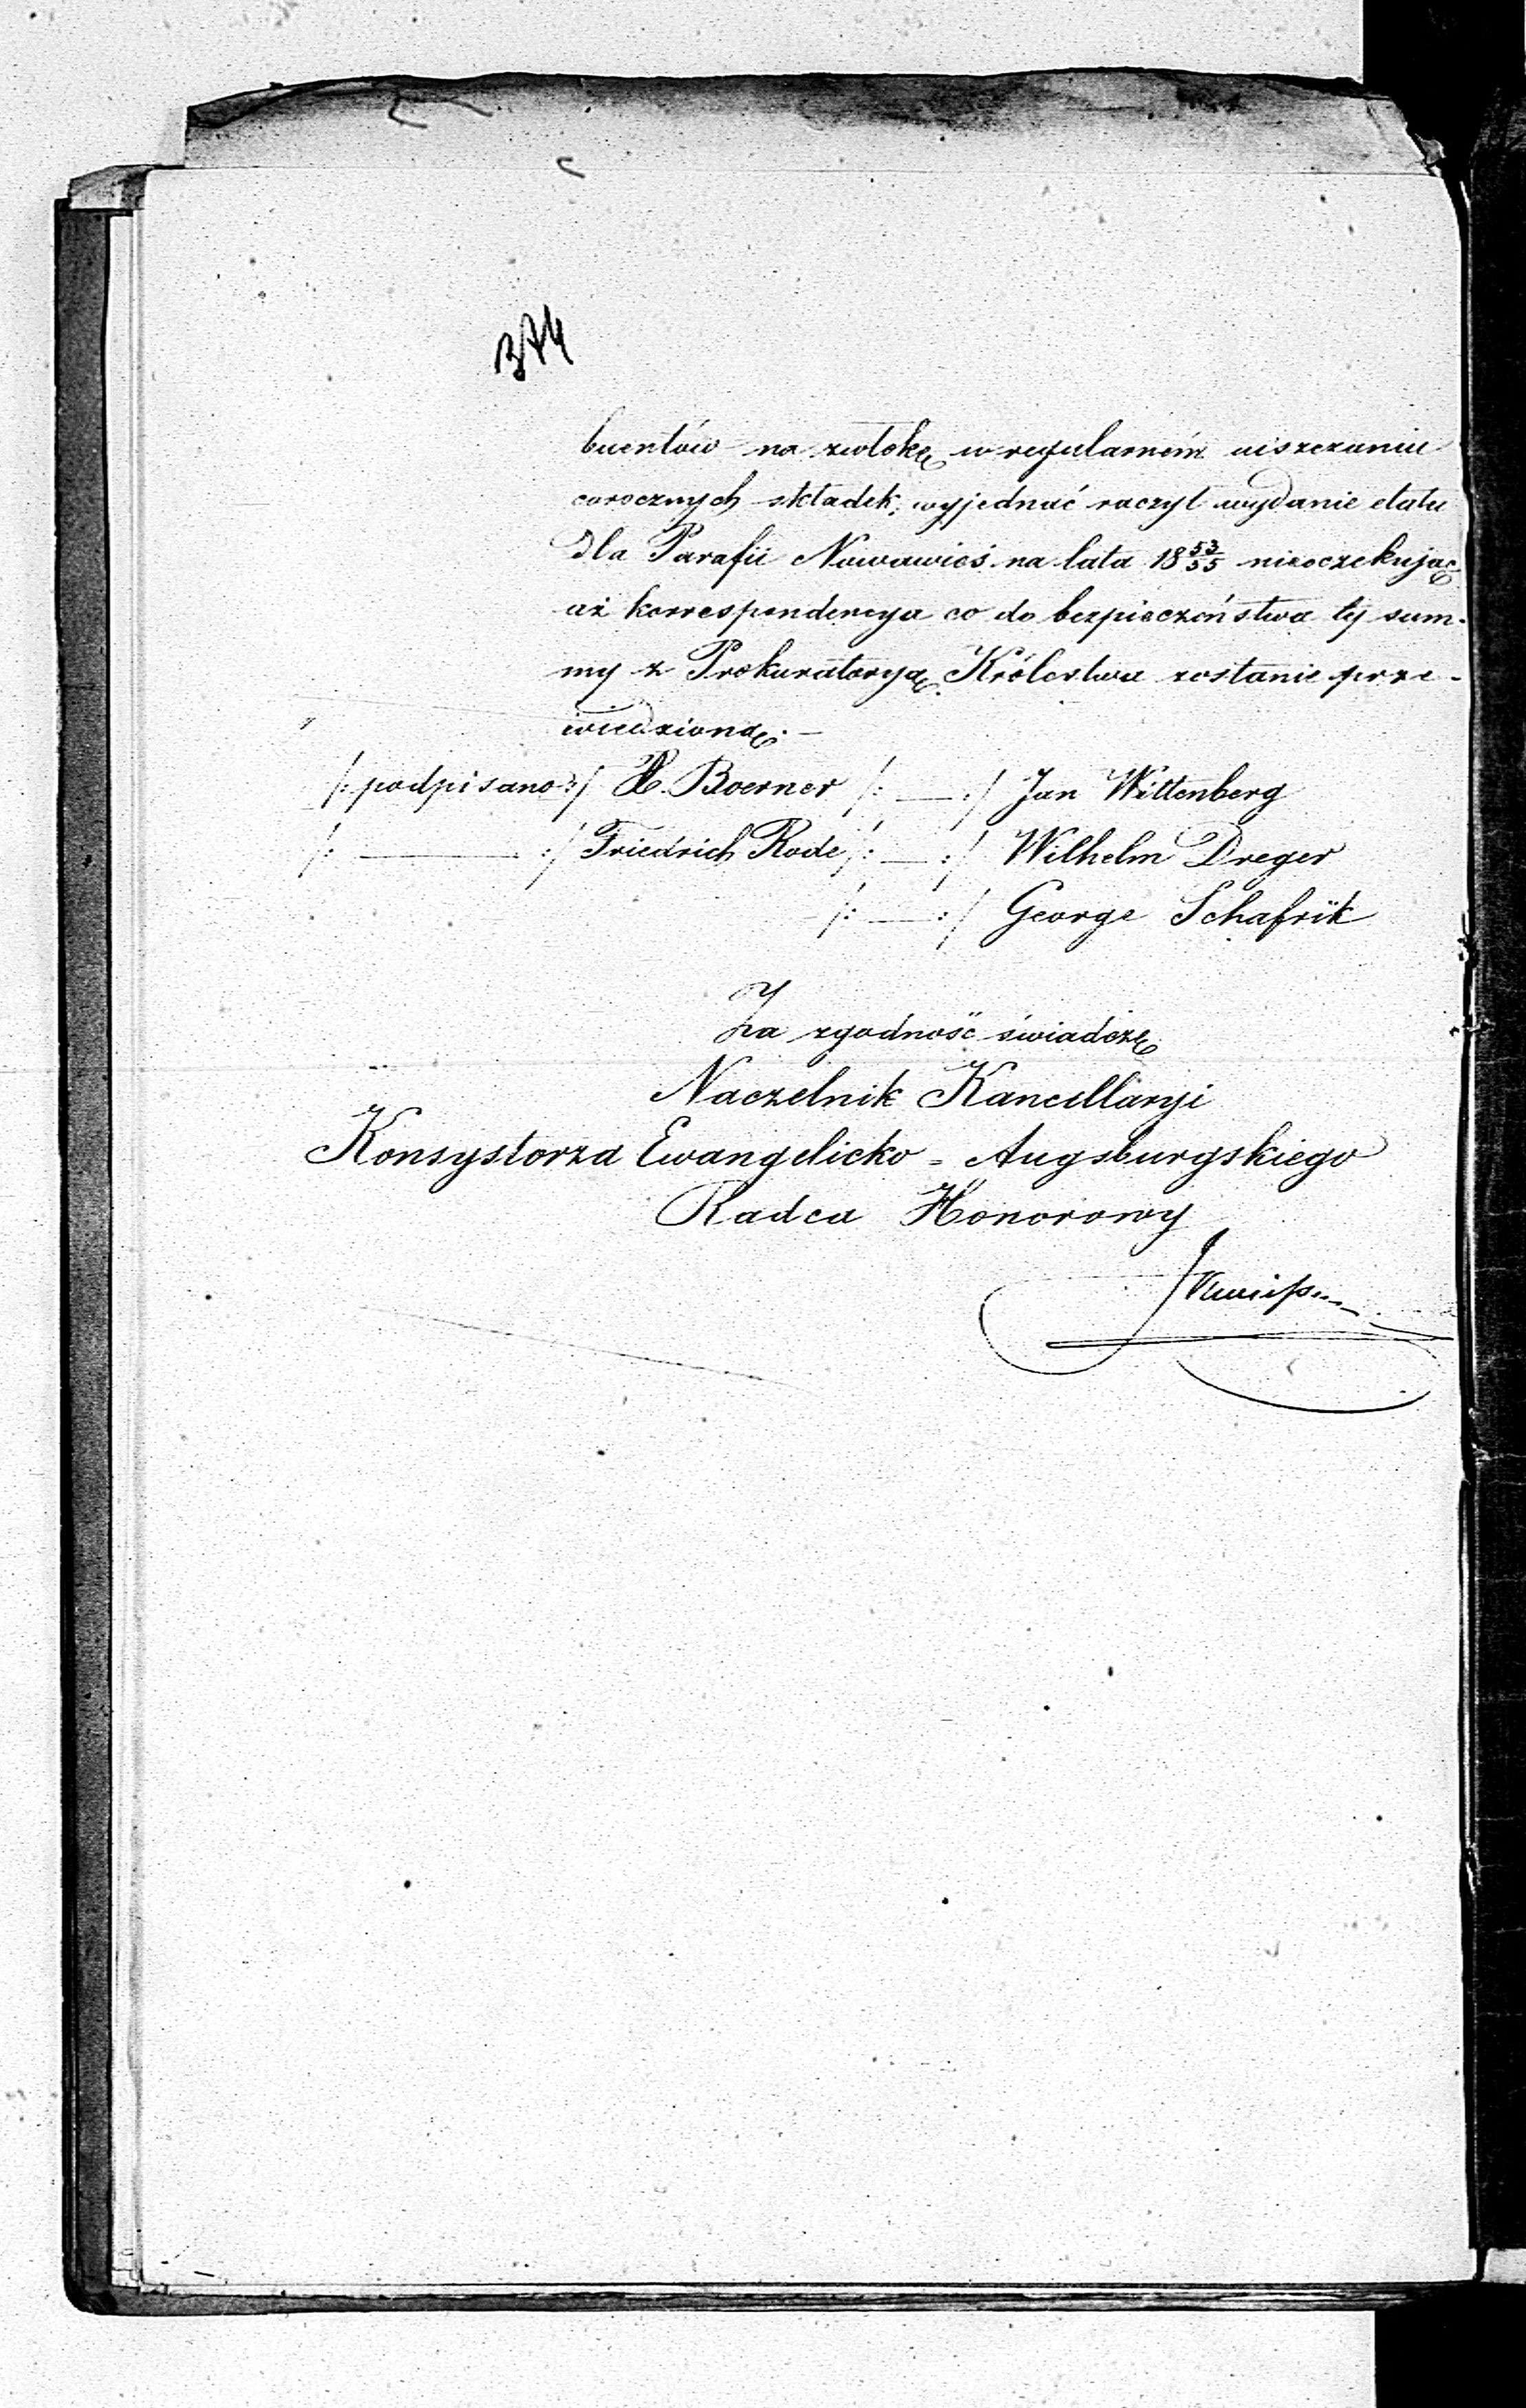 374
buentów na zwłokę w regularném uiszczaniu
corocznych składek, wyjednać raczył wydanie etatu
dla Parafii Nowawieś na lata 18 53/55 nieoczekując
aż korrespondencya co do bezpieczeństwa tej sum-
my z Prokuratoryą Królestwa zostanie prze-
wiedzioną. —
/: podpisano :/ H. Boerner /: — :/ Jan Wittenberg
/: — :/ Friedrich Rode /: — :/ Wilhelm Dreger
/: — :/ George Schafrik
Za zgodność świadczę
Naczelnik Kancellaryi
Konsystorza Ewangelicko = Augsburgskiego
Radca Honorowy